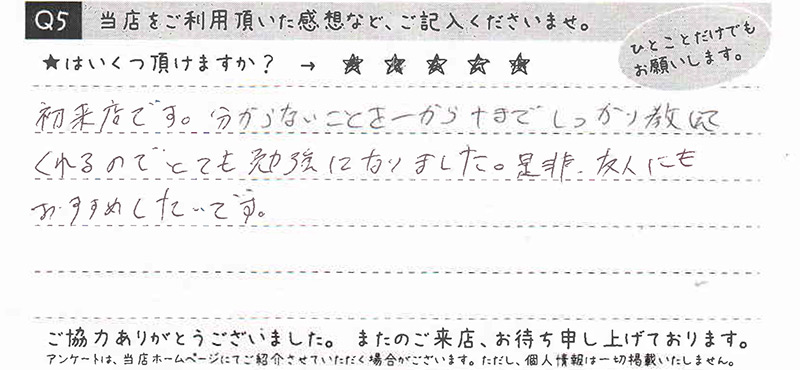 Q5 当店をご利用頂いた感想など、ご記入くださいませ。
ひとことだけでも
お願いします。
★はいくつ頂けますか？ → ★ ★ ★ ★ ★
初来店です。分からないことを一から十までしっかり教えて
くれるのでとても勉強になりました。是非、友人にも
おすすめしたいです。
ご協力ありがとうございました。 またのご来店、お待ち申し上げております。
アンケートは、当店ホームページにてご紹介させていただく場合がございます。ただし、個人情報は一切掲載いたしません。